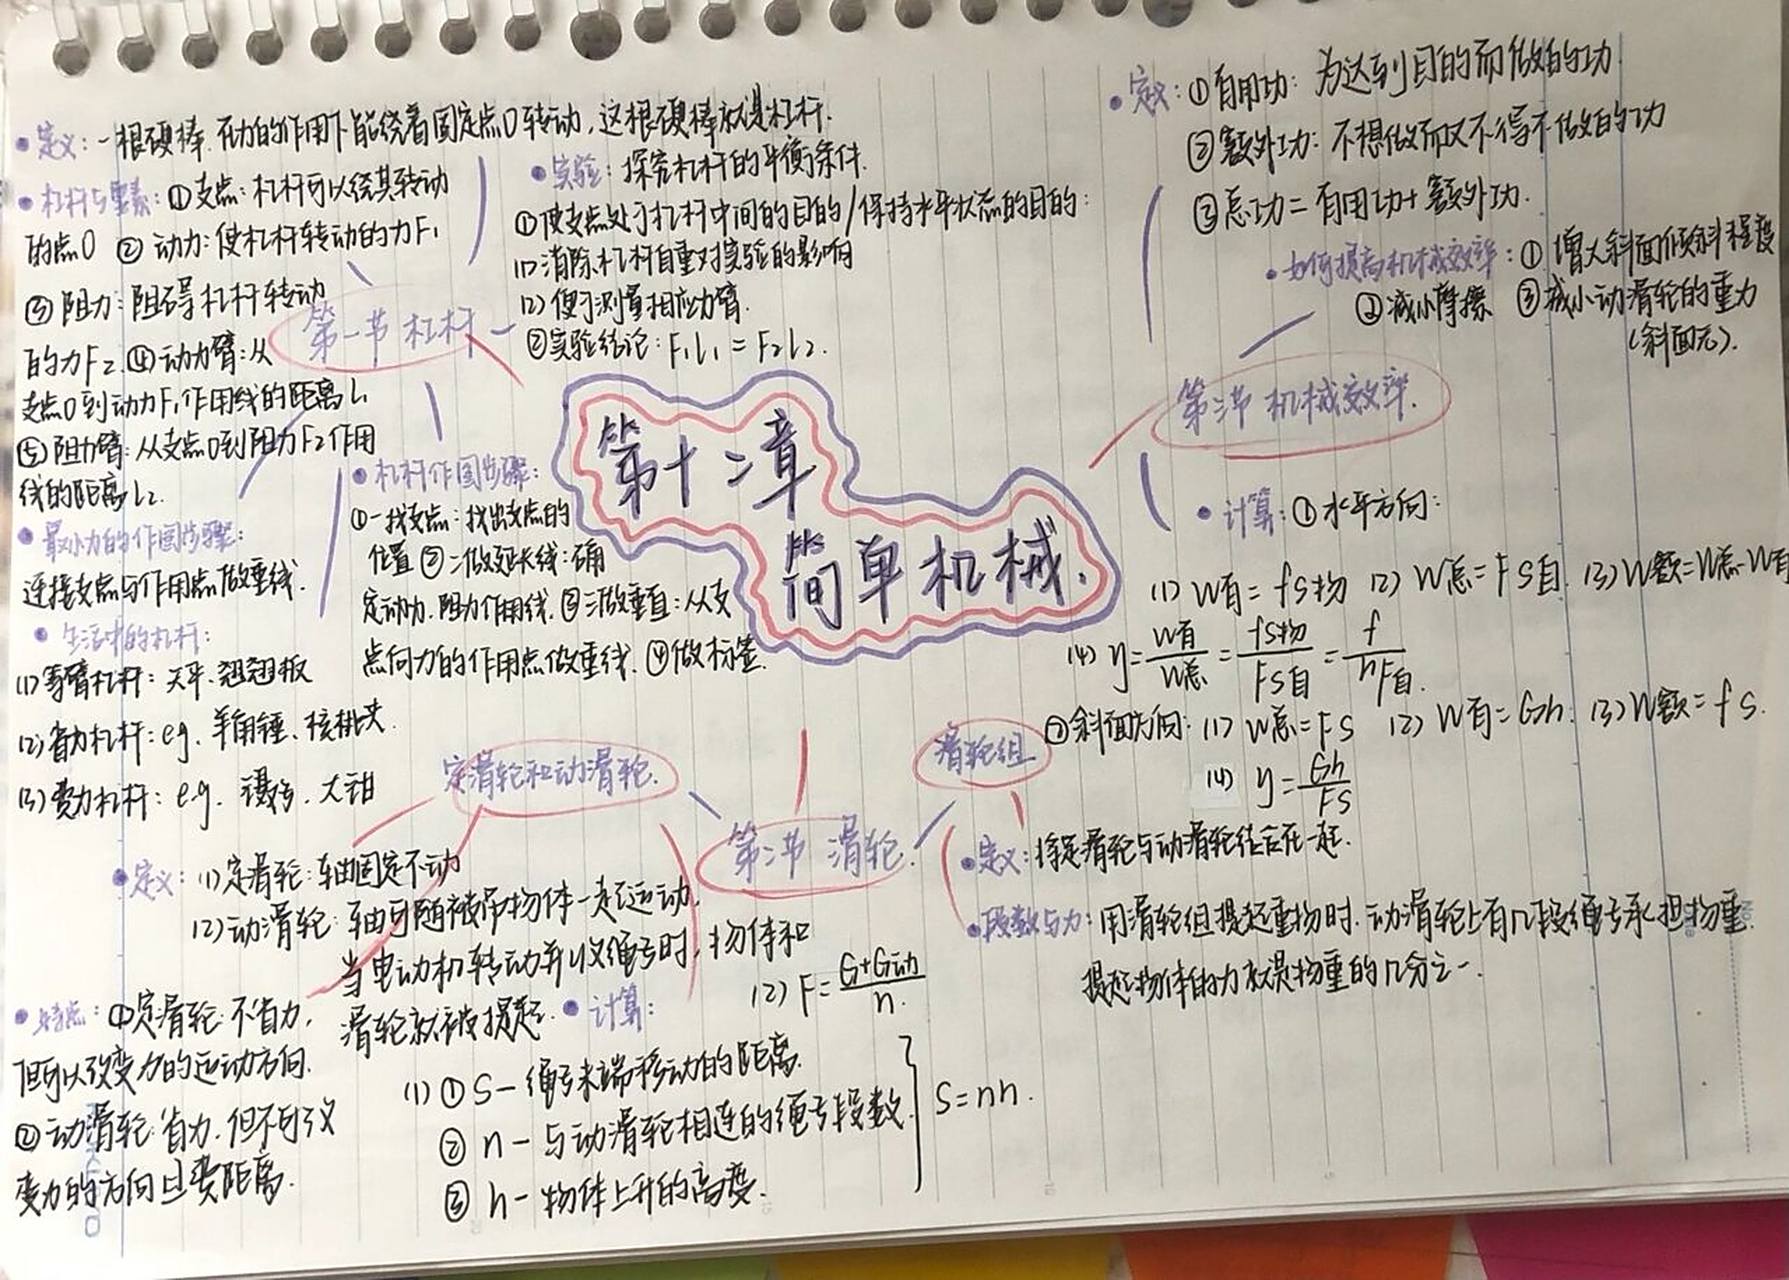 第十二章
简单机械.
第一节 杠杆
• 定义: 一根硬棒.在力的作用下能绕着固定点O转动,这根硬棒就是杠杆.
• 杠杆五要素: ①支点: 杠杆可以绕其转动
的点O ② 动力: 使杠杆转动的力F₁
③ 阻力: 阻碍杠杆转动
的力F₂ ④动力臂: 从
支点O到动力F₁作用线的距离L₁
⑤ 阻力臂: 从支点O到阻力F₂作用
线的距离L₂.
• 最小力的作图步骤:
连接支点与作用点.做垂线.
• 生活中的杠杆:
(1) 等臂杠杆: 天平.翘翘板
(2) 省力杠杆: eg. 羊角锤、核桃夹.
(3) 费力杠杆: e.g. 镊子. 大钳
• 实验: 探究杠杆的平衡条件.
①使支点处于杠杆中间的目的/保持水平状态的目的:
(1) 消除杠杆自重对实验的影响
(2) 便于测量相应力臂.
②实验结论: F₁L₁ = F₂L₂.
• 杠杆作图步骤:
①一找支点: 找出支点的
位置 ②二做延长线: 确
定动力.阻力作用线. ③三做垂直: 从支
点向力的作用点做垂线. ④做标签.
第二节 滑轮.
定滑轮和动滑轮.
• 定义: (1) 定滑轮: 轴固定不动
(2) 动滑轮: 轴可随被吊物体一起运动.
当电动机转动并收绳子时, 物体和
滑轮就被提起.
• 特点: ①定滑轮: 不省力,
但可以改变力的运动方向.
②动滑轮: 省力. 但不可改
变力的方向且费距离.
• 计算:
(2) F = (G+G动)/n.
(1) ① S — 绳子末端移动的距离.
② n — 与动滑轮相连的绳子段数.
③ h — 物体上升的高度.
S = nh.
滑轮组
• 定义: 将定滑轮与动滑轮结合在一起.
• 段数与力: 用滑轮组提起重物时. 动滑轮上有几段绳子承担物重.
提起物体的力就是物重的几分之一.
第三节 机械效率.
• 定义: ①有用功: 为达到目的而做的功
②额外功: 不想做而又不得不做的功
③总功 = 有用功 + 额外功.
• 如何提高机械效率: ① 增大斜面倾斜程度
② 减小摩擦 ③减小动滑轮的重力
(斜面无).
• 计算: ①水平方向:
(1) W有 = fS物 (2) W总 = FS自. (3) W额=W总-W有
(4) η = W有/W总 = fS物/FS自 = f/nF自.
②斜面方向: (1) W总 = FS (2) W有 = Gh. (3) W额 = fS.
(4) η = Gh/FS